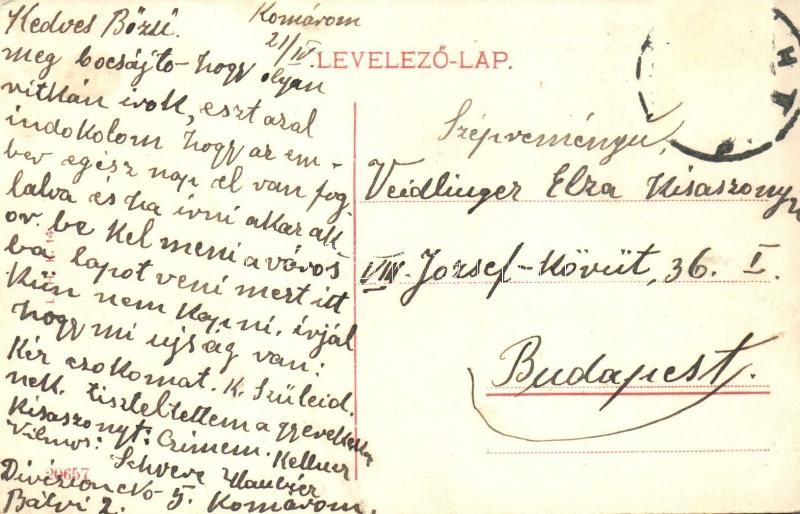 Komárom
21/IV
Kedves Bözsi.
meg bocsájto-hogy olyan
ritkán irok, eszt azal
indokolom hogy az em-
ber egész nap el van fog-
lalva és ha irni akar ak-
or be kel meni a város
ba lapot veni mert itt
kün nem kapni. irjál
hogy mi ujság van:
Kér csokomat. K. Szüleid.
nek tiszteltettem a gyerekeket
Kisaszonyt: Czimem: Kellner
Vilmos: Schvere Haubizer
Division No 5. Komárom,
20657
LEVELEZŐ-LAP.
Veidlinger Elza Kisaszony
VIII. Jozsef-Körút, 36. I.
Budapest.